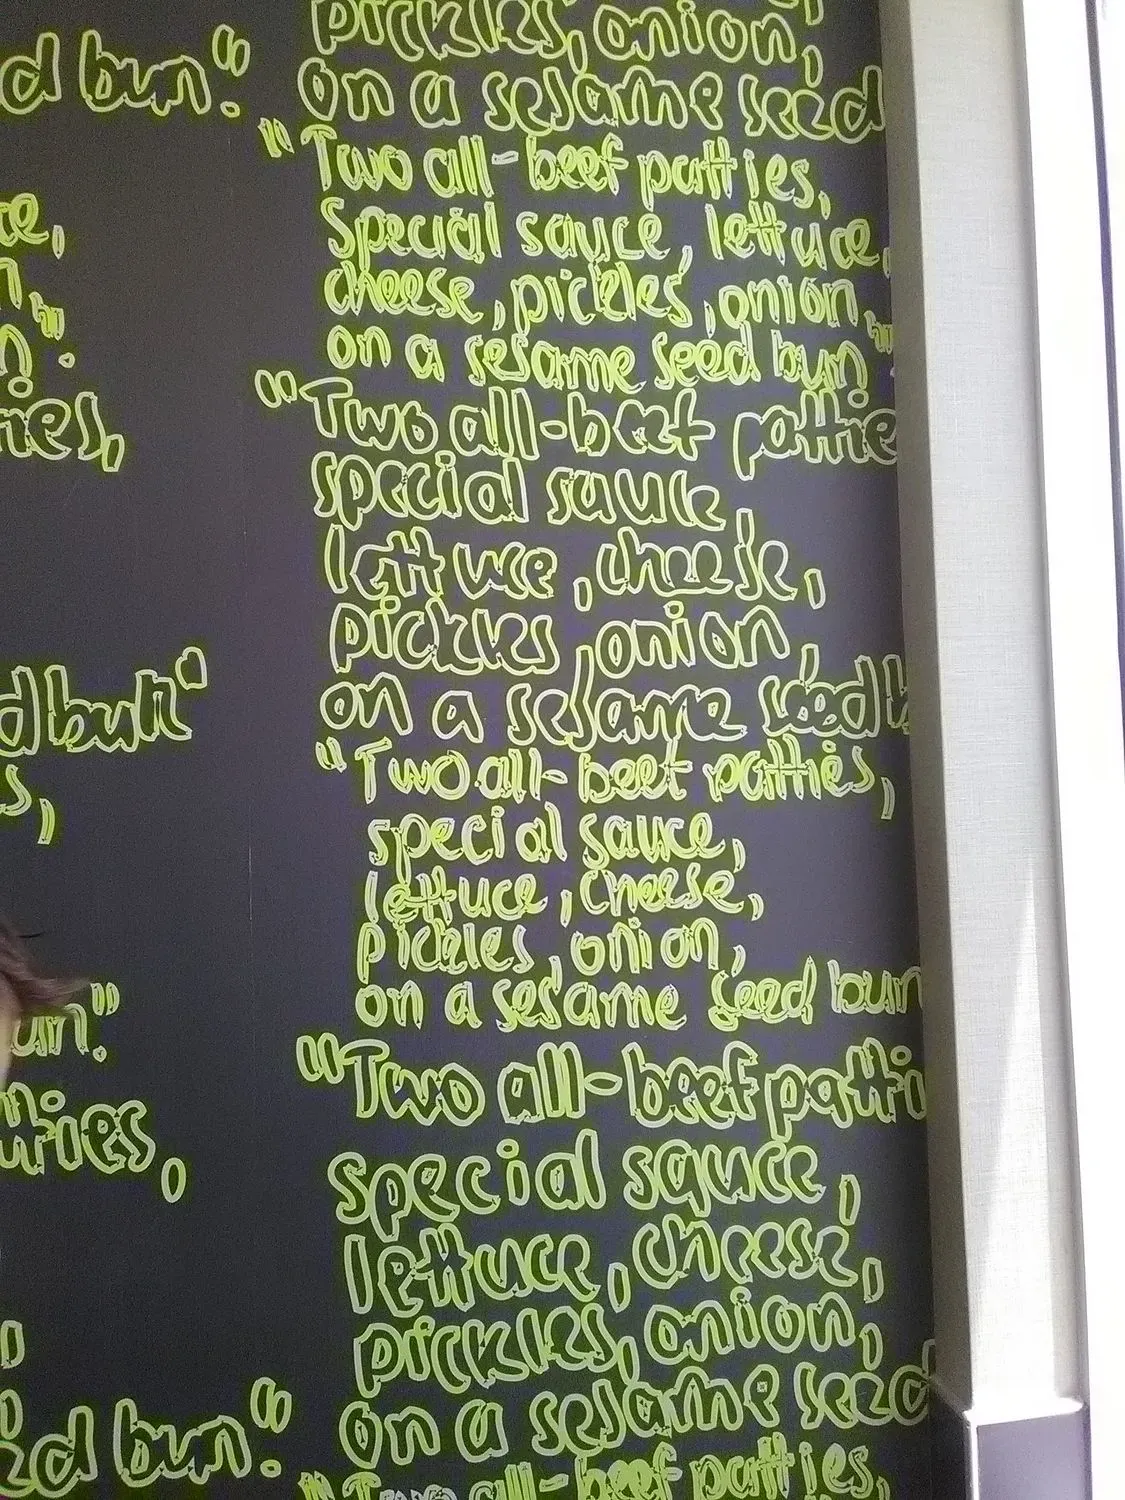 d bun."
e,
n."
ies,
d bun"
s,
un."
tties,
ed bun."
pickles, onion,
on a sesame seed
"Two all-beef patties,
special sauce, lettuce,
cheese, pickles, onion
on a sesame seed bun"
"Two all-beef pattie
special sauce,
lettuce, cheese,
pickles, onion,
on a sesame seed b
"Two all-beef patties,
special sauce,
lettuce, cheese,
pickles, onion,
on a sesame seed bun
"Two all-beef patti
special sauce,
lettuce, cheese,
pickles, onion,
on a sesame seed
"Two all-beef patties,